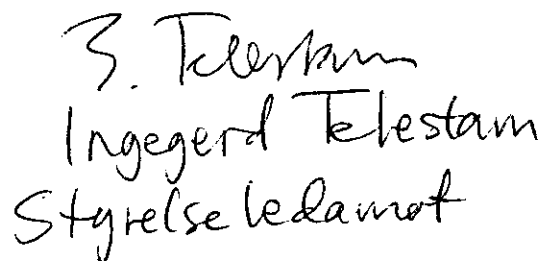 3. Telestam
Ingegerd Telestam
Styrelseledamot